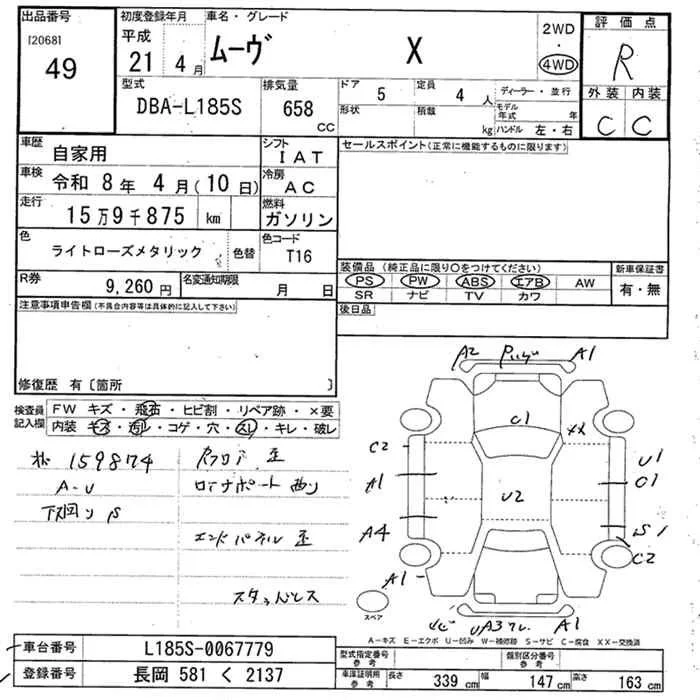 出品番号 初度登録年月 車名・グレード 2WD 評価点
[2068] 平成 ムーヴ X ・ R
49 21 4月 4WD
型式 排気量 ドア 5 定員 4人 ディーラー・並行 外装 内装
DBA-L185S 658 cc 形状 積載 kg モデル年式 年 C C
ハンドル 左・右
車歴 自家用 シフト IAT セールスポイント(正常に機能するものに限ります)
車検 令和 8年 4月(10日) 冷房 AC
走行 15万9千875 km 燃料 ガソリン
色 ライトローズメタリック 色替 色コード T16
R券 9,260円 名変通知期限 月 日
装備品(純正品に限り○をつけてください) 新車保証書
PS PW ABS エアB AW 有・無
SR ナビ TV カワ
注意事項申告欄(不具合内容等は具体的に記入して下さい) 後日品
修復歴 有〔箇所 〕
検査員記入欄 FW キズ・飛石・ヒビ割・リペア跡・×要
内装・キズ・汚レ・コゲ・穴・スレ・キレ・破レ
159874
A-U
下廻り S
エンドパネル 歪
スタッドレス
A2 A1
C1 XX
C2 U1
A1 C1
U2
A4 S1
C2
A1
スペア
A1
A-キズ E-エクボ U-凹み W-補修跡 S-サビ C-腐食 XX-交換済
車台番号 L185S-0067779 型式指定番号 参考 類別区分番号 参考
登録番号 長岡 581 く 2137 車庫証明用 参考 長さ 339 cm 幅 147 cm 高さ 163 cm